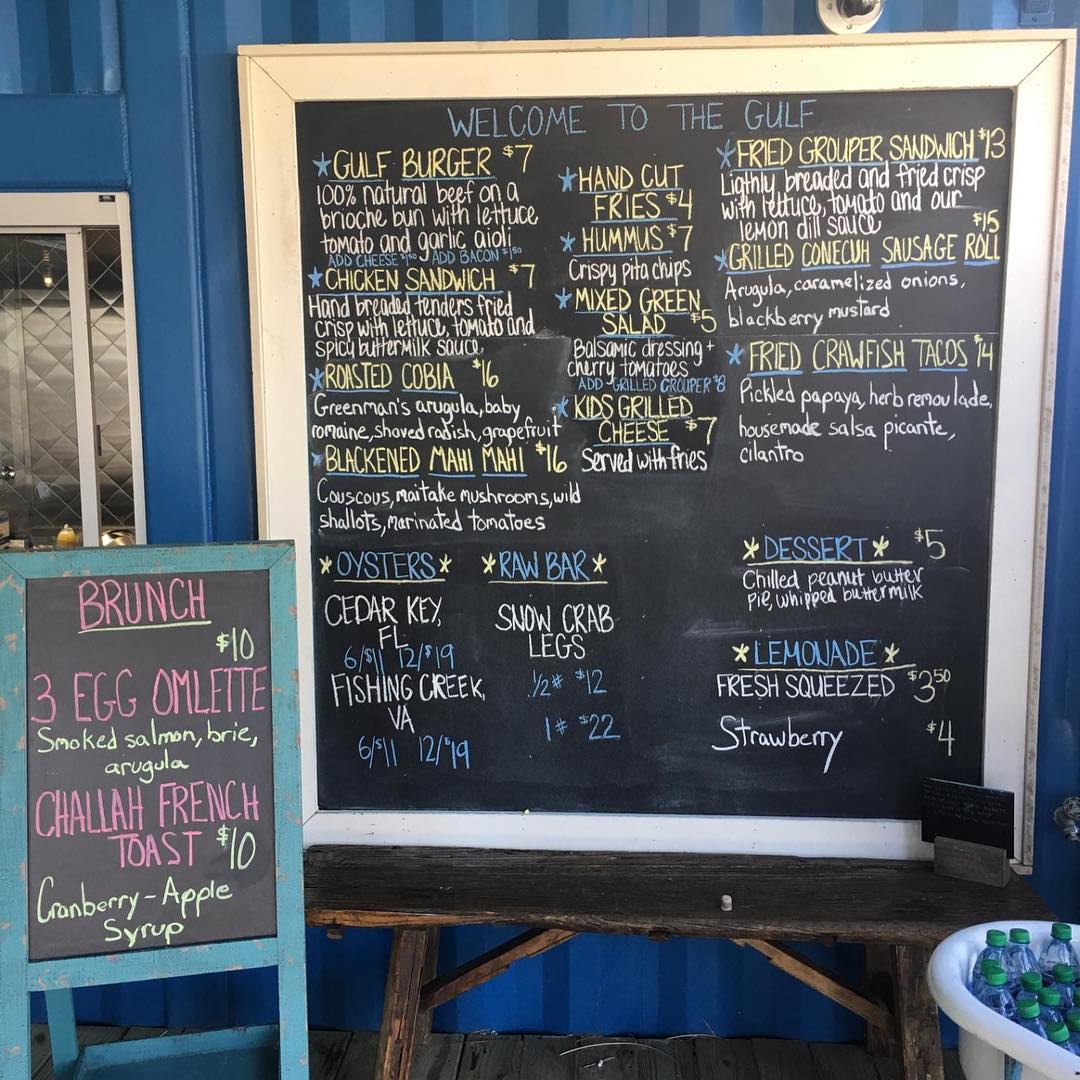 WELCOME TO THE GULF
GULF BURGER $7
100% natural beef on a
brioche bun with lettuce
tomato and garlic aioli
ADD CHEESE $1.50 ADD BACON $1.50
CHICKEN SANDWICH $7
Hand breaded tenders fried
crisp with lettuce, tomato and
spicy buttermilk sauce
ROASTED COBIA $16
Greenman's arugula, baby
romaine, shaved radish, grapefruit
BLACKENED MAHI MAHI $16
Couscous, maitake mushrooms, wild
shallots, marinated tomatoes
HAND CUT
FRIES $4
HUMMUS $7
Crispy pita chips
MIXED GREEN
SALAD $5
Balsamic dressing +
cherry tomatoes
ADD GRILLED GROUPER $8
KIDS GRILLED
CHEESE $7
Served with fries
FRIED GROUPER SANDWICH $13
Ligthly breaded and fried crisp
with lettuce, tomato and our
lemon dill sauce
$15
GRILLED CONECUH SAUSAGE ROLL
Arugula, caramelized onions,
blackberry mustard
FRIED CRAWFISH TACOS $14
Pickled papaya, herb remoulade,
housemade salsa picante,
cilantro
OYSTERS
CEDAR KEY,
FL
6/$11 12/$19
FISHING CREEK,
VA
6/$11 12/$19
RAW BAR
SNOW CRAB
LEGS
1/2# $12
1# $22
DESSERT $5
Chilled peanut butter
pie, whipped buttermilk
LEMONADE
FRESH SQUEEZED $3.50
Strawberry $4
BRUNCH
$10
3 EGG OMLETTE
Smoked salmon, brie,
arugula
CHALLAH FRENCH
TOAST $10
Cranberry-Apple
Syrup